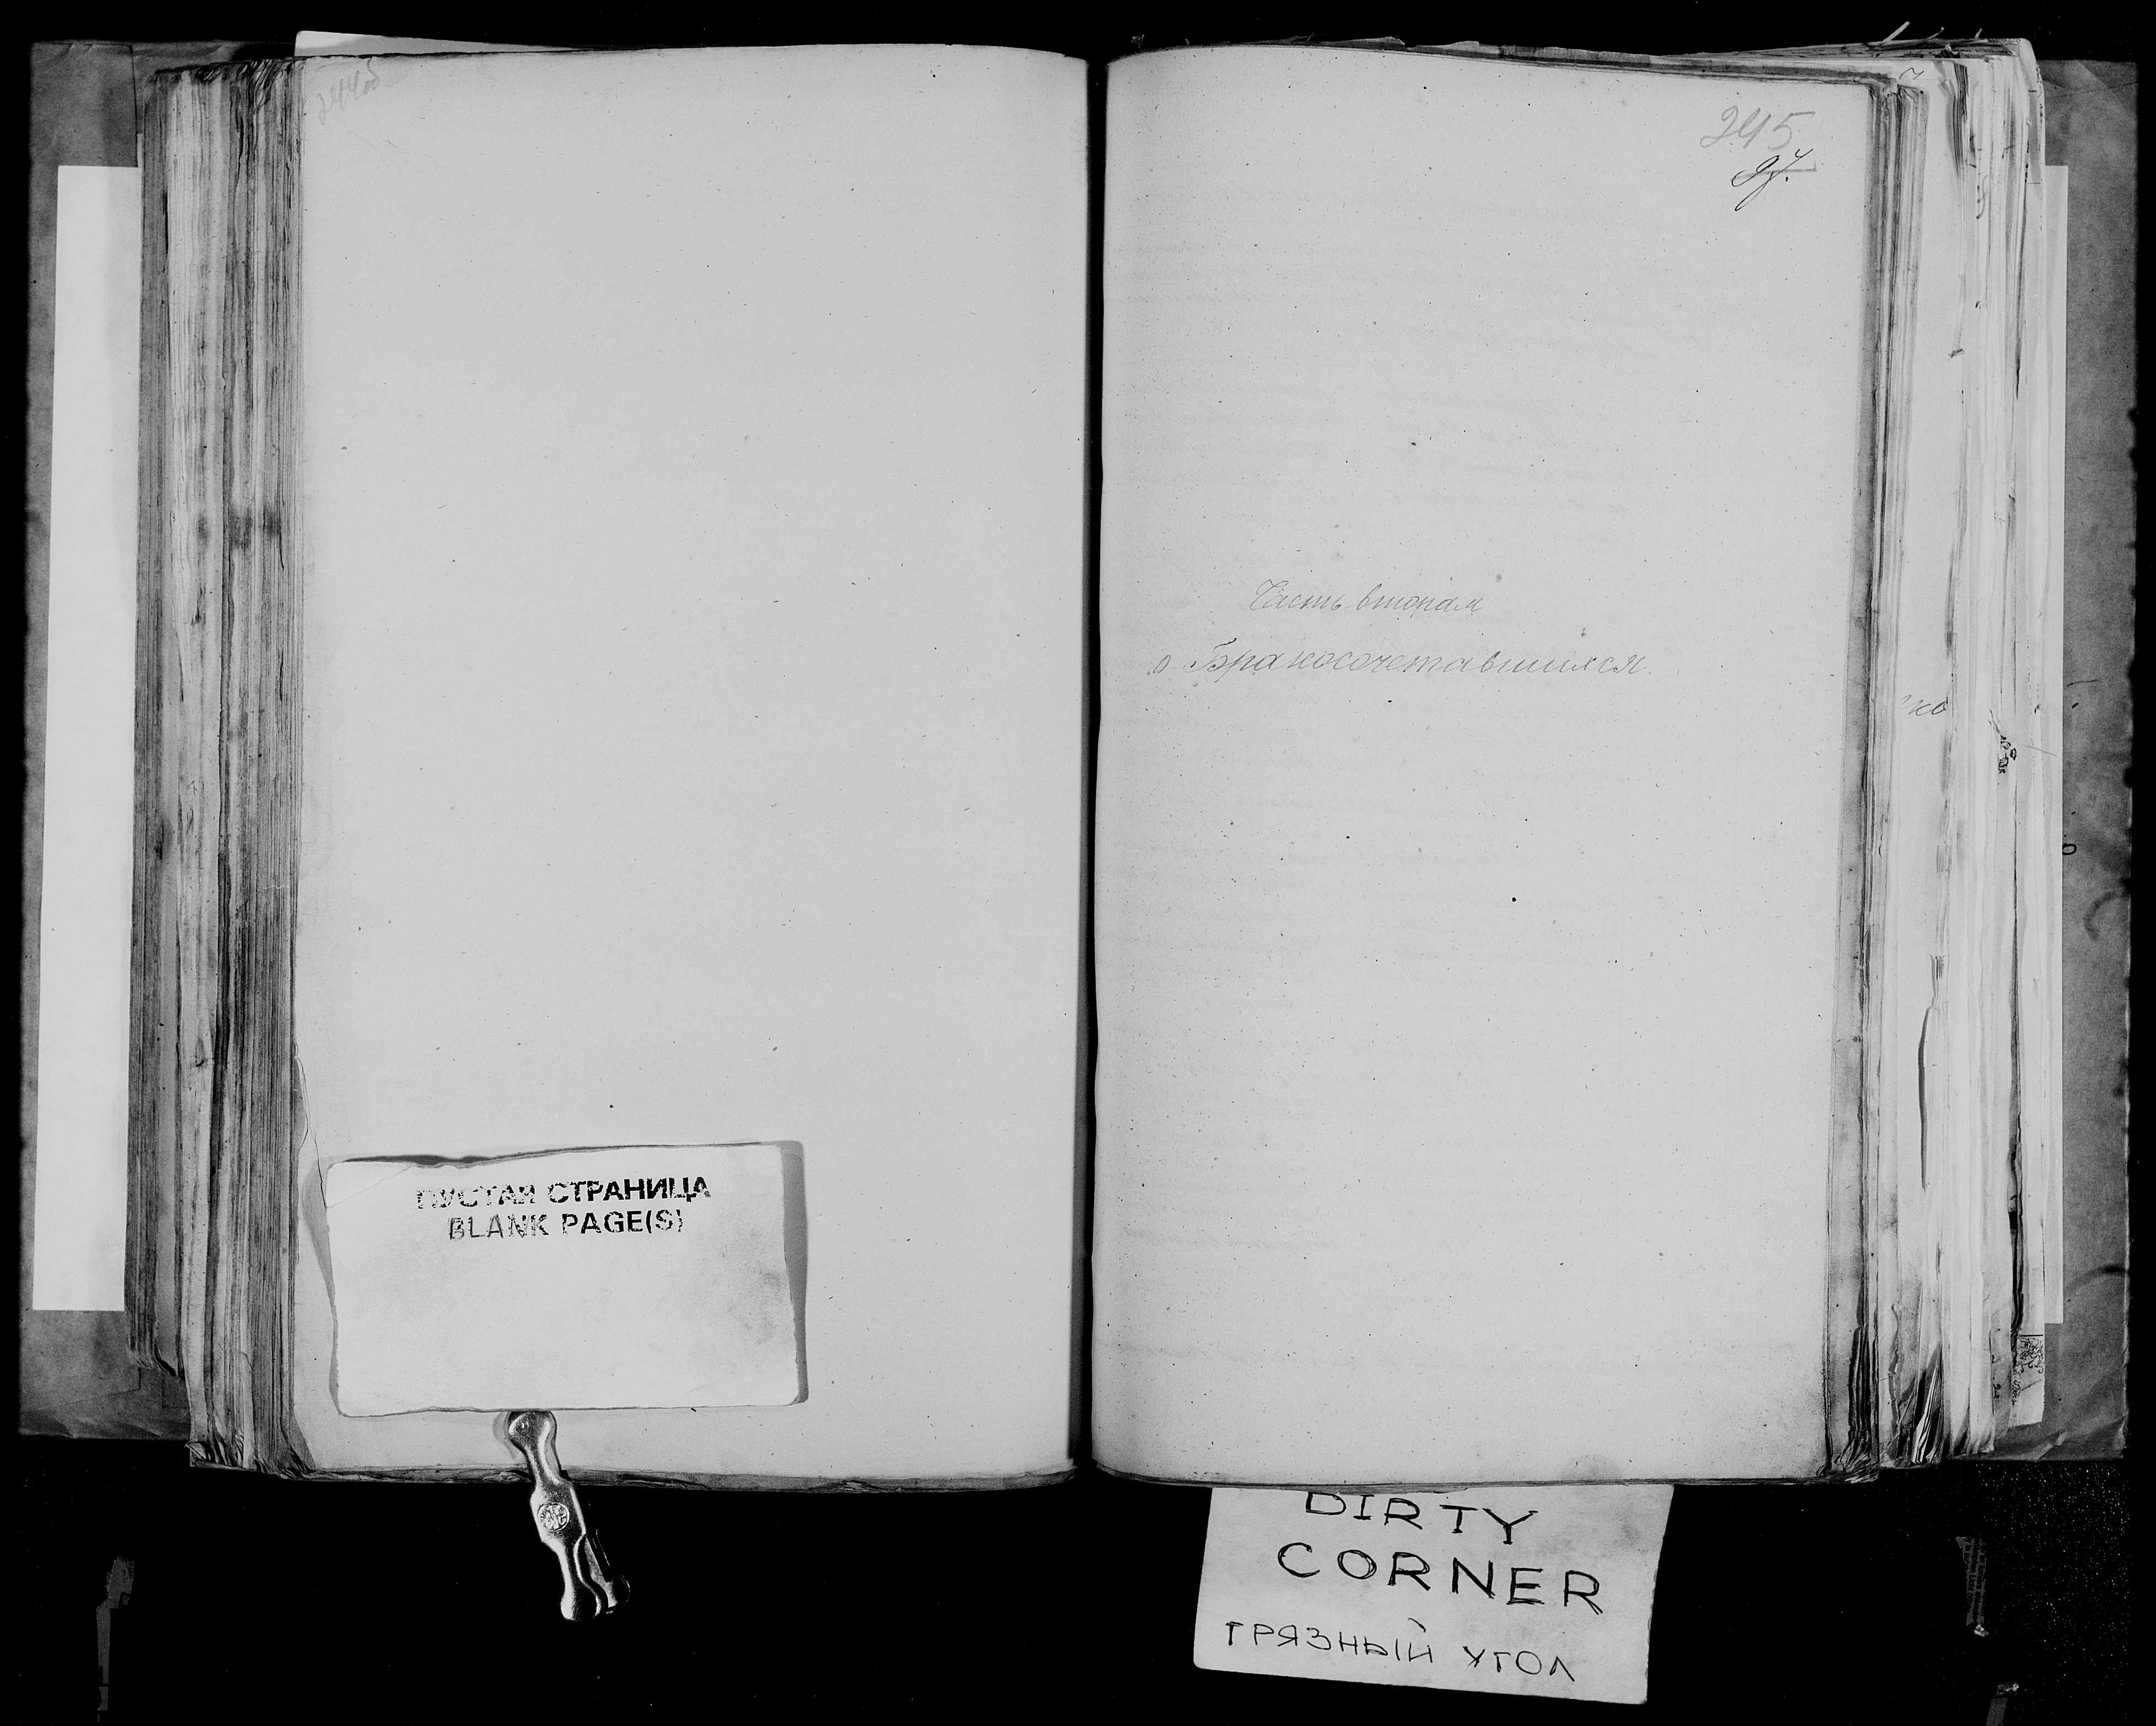 244об
245
Часть вторая
о Бракосочетавшихся.
ПУСТАЯ СТРАНИЦА
BLANK PAGE(S)
DIRTY
CORNER
ГРЯЗНЫЙ УГОЛ